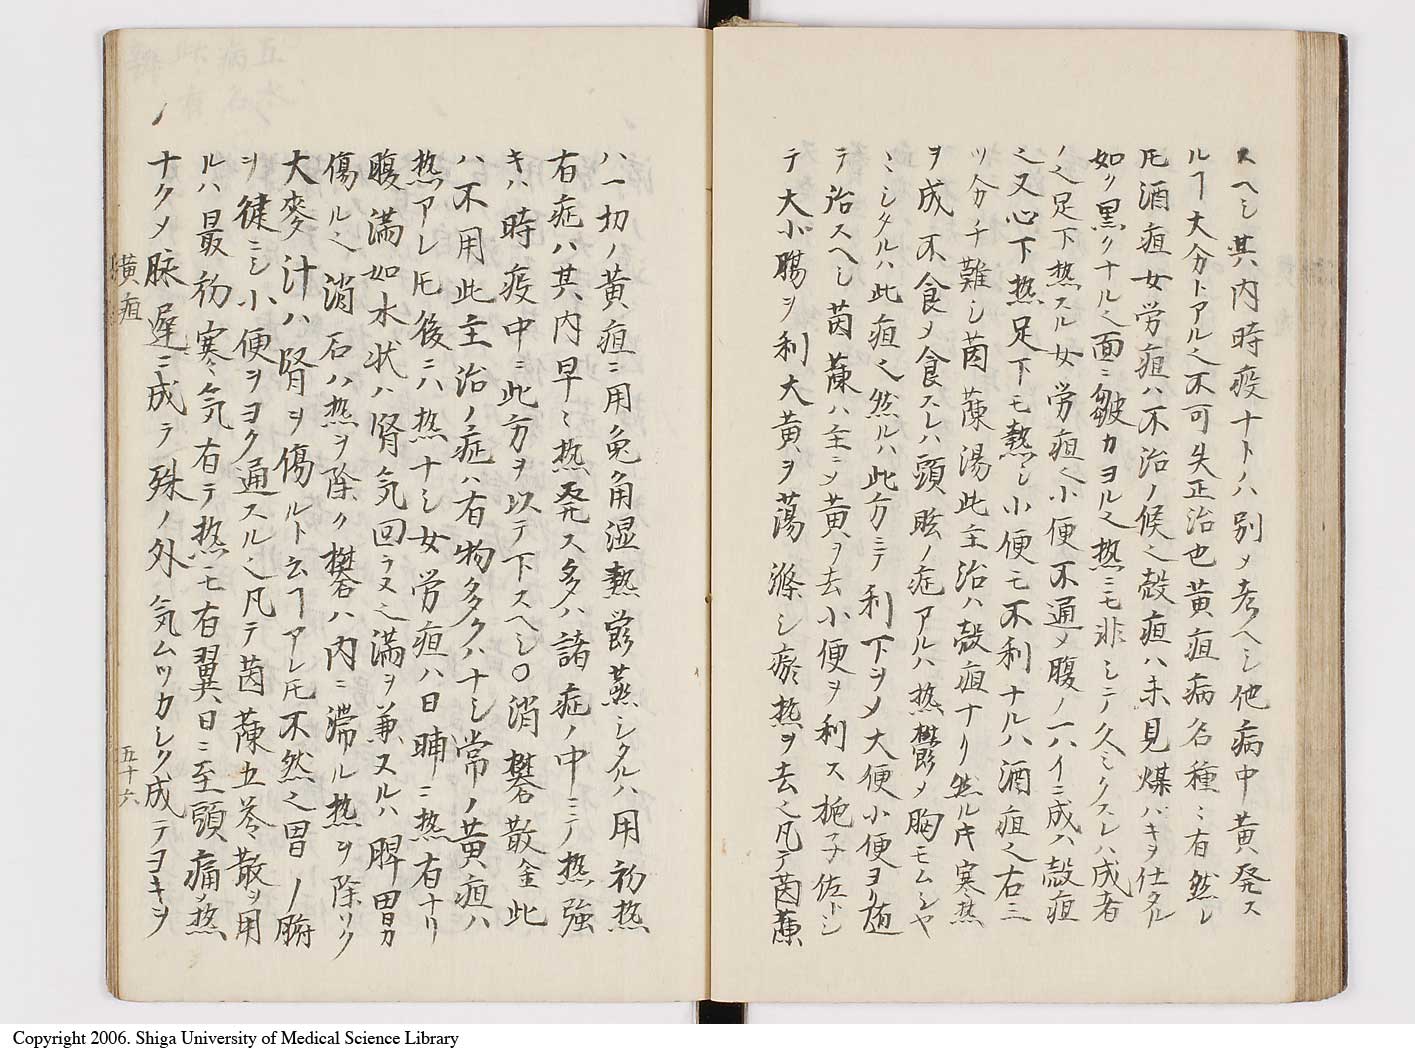 スヘシ其内時疫ナトハ別メ考ヘシ他病中黄発ス
ルヿ大分トアル之不可失正治也黄疸病名種ミ有然レ
𪜈酒疸女労疸ハ不治ノ候之殻疸ハ未見煤バキヲ仕タル
如ク黒クナル之面ニ皺カヨル之熱ニモ非シテ久シクスレハ成者
ノ之足下熱スル女労疸之小便不通メ腹ノ一ハイニ成ハ殻疸
之又心下熱足下モ熱シ小便モ不利ナルハ酒疸之右三
ツ分チ難シ茵蔯湯此主治ハ殻疸ナリ然ルキ寒熱
ヲ成不食メ食スレハ頭眩ノ症アルハ熱欝メ胸モムシヤ
ミシタルハ此疸之然ルハ此方ニテ利下ヲメ大便小便ヨリ遁
テ治スヘシ茵蔯ハ主ニメ黄ヲ去小便ヲ利ス梔子佐トシ
テ大小腸ヲ利大黄ヲ蕩滌シ瘀熱ヲ去之凡テ茵蔯
ハ一切ノ黄疸ニ用兔角湿熱欝蒸シタルハ用初熱
右症ハ其内早ミ熱発ス多ハ諸症ノ中ニテ熱強
キハ時疫中ニ此方ヲ以テ下スヘシ〇消礬散金此
ハ不用此主治ノ症ハ有物多クハナシ常ノ黄疸ハ
熱アレ𪜈後ニハ熱ナシ女労疸ハ日晡ニ熱有ナリ
腹満如水状ハ腎気回ラヌ之満ヲ兼ヌルハ脾胃カ
傷ル之消石ハ熱ヲ除ク礬ハ内ニ滞ル熱ヲ除リク
大麥汁ハ腎ヲ傷ルト云ヿアレ𪜈不然之胃ノ腑
ヲ健ニシ小便ヲヨク通スル之凡テ茵蔯五苓散ヲ用
ルハ最初寒気有テ熱モ有翼日ニ至頭痛ノ熱
ナクメ脉遅ニ成テ殊ノ外気ムツカシク成テヨキヲ
黄疸
五十六
Copyright 2006. Shiga University of Medical Science Library